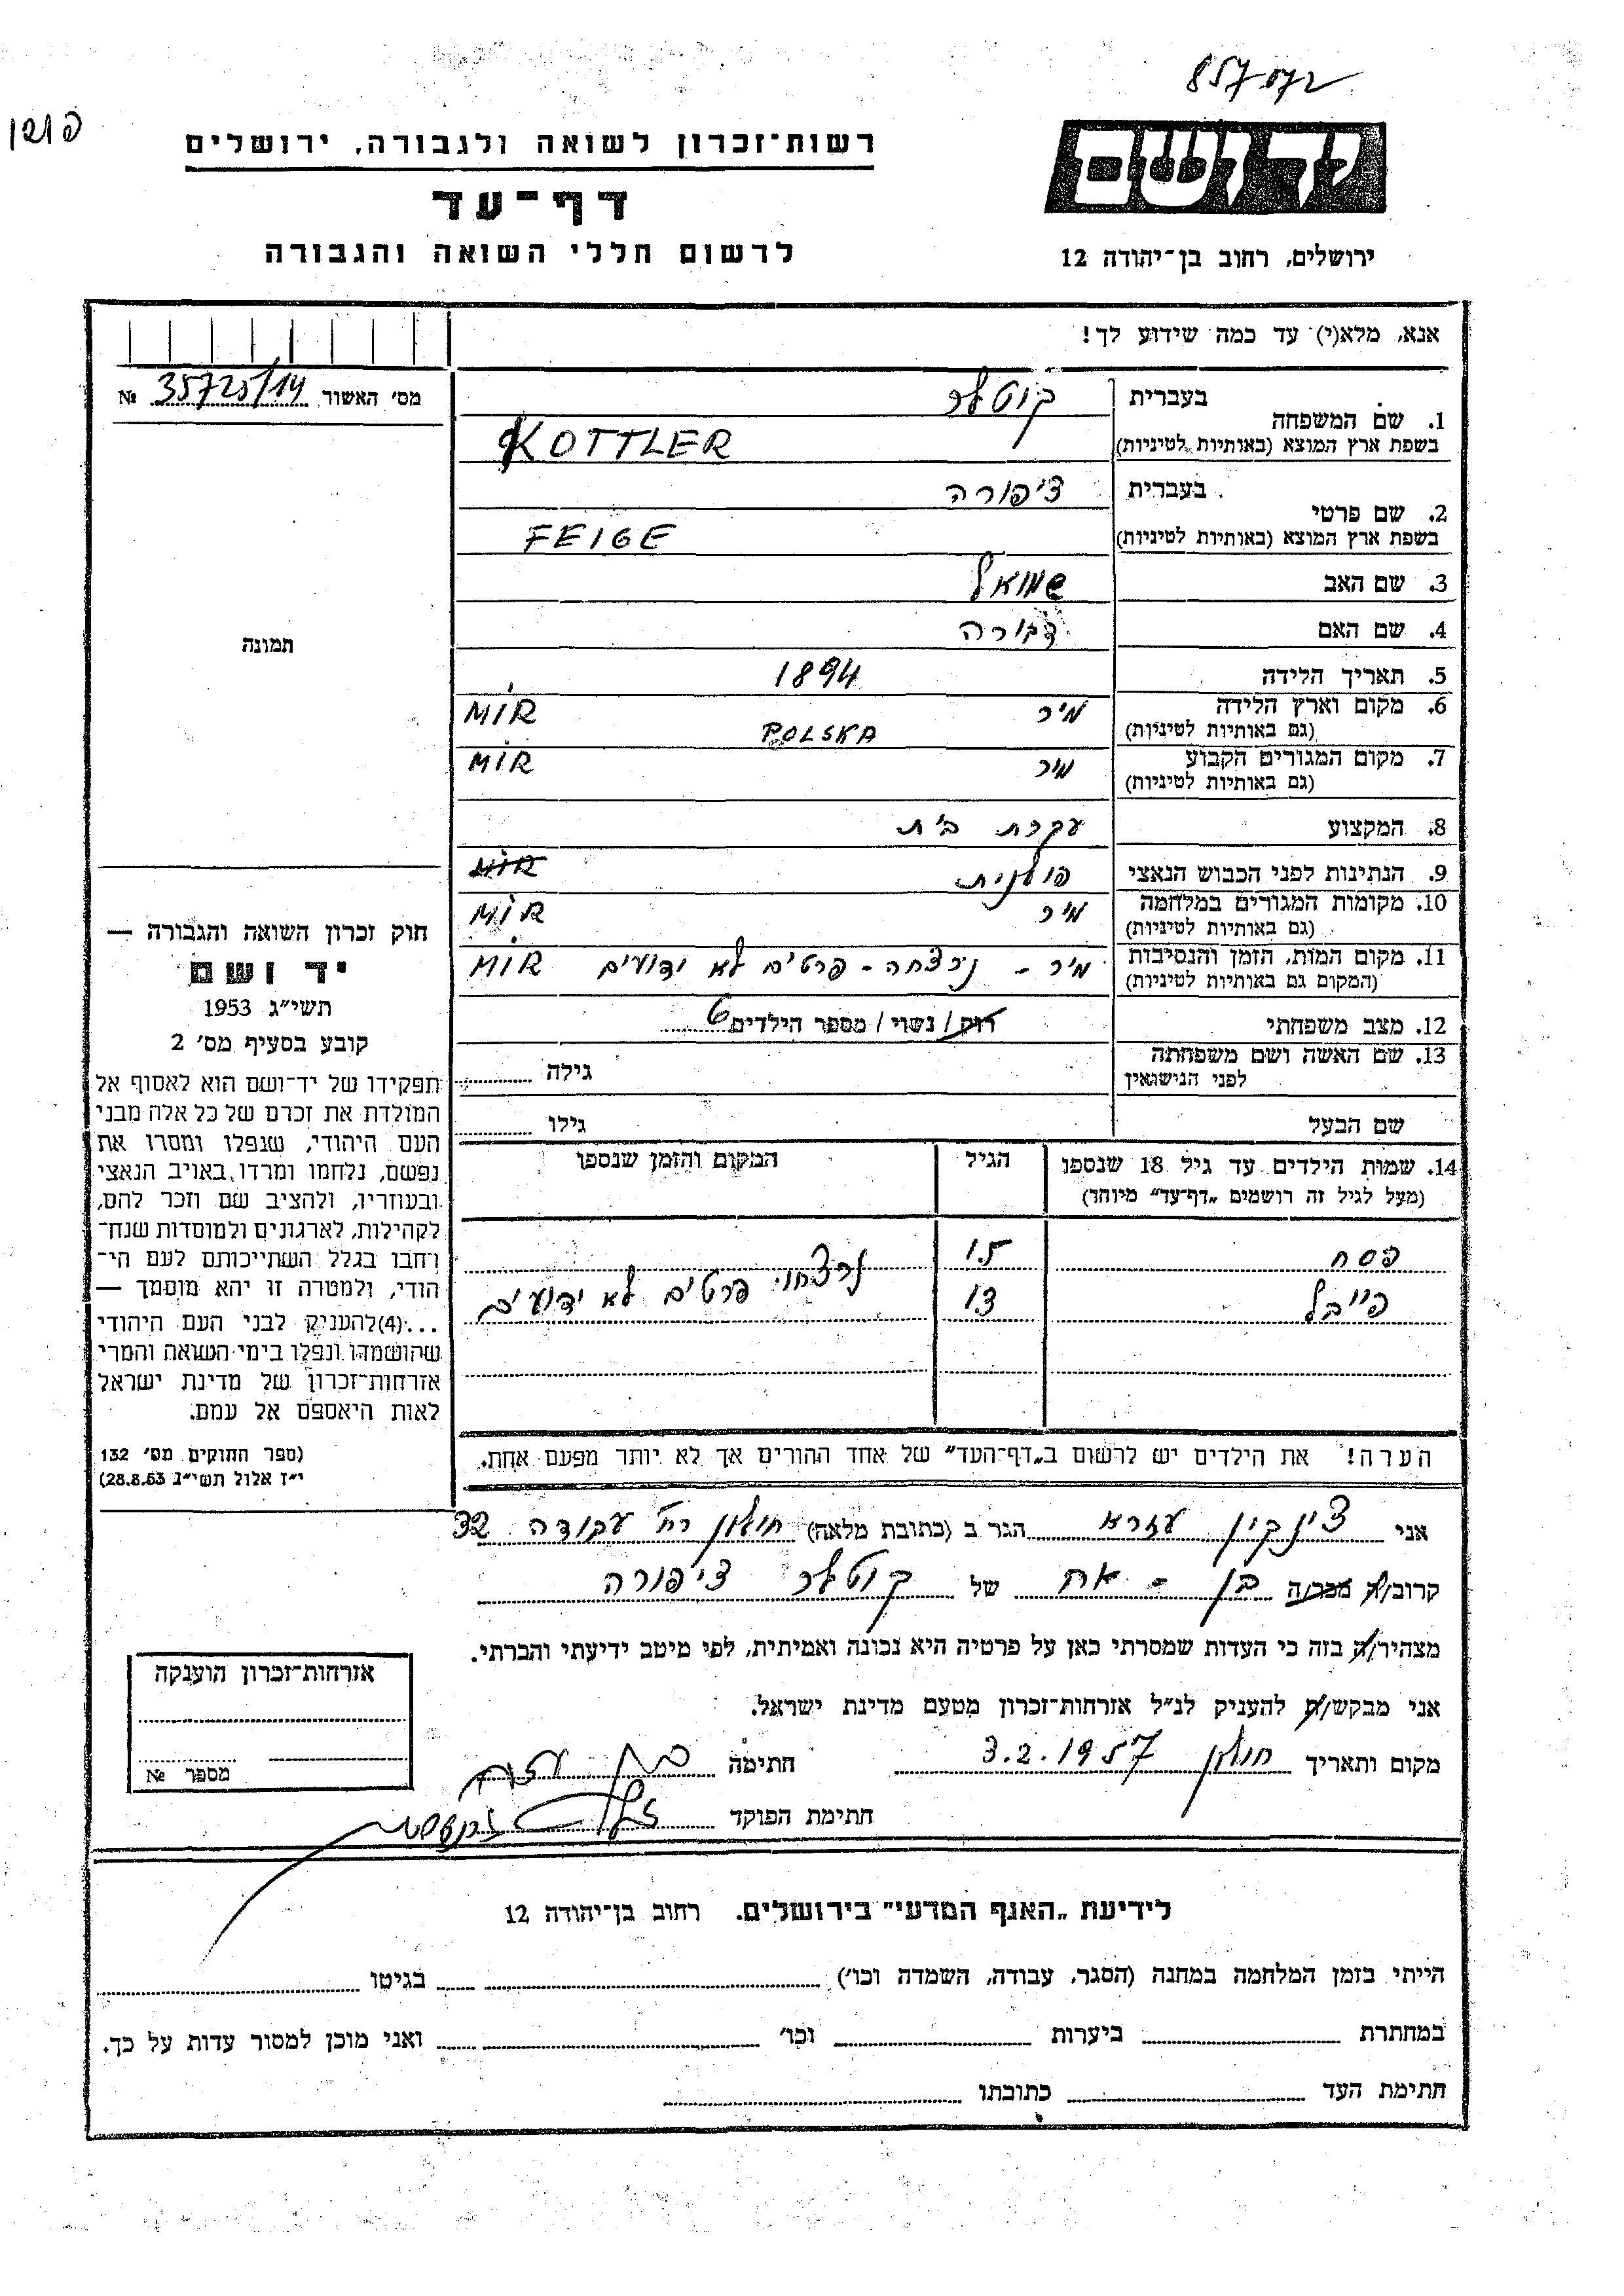 857072
פוטין
ידושם
רשות־זכרון לשואה ולגבורה, ירושלים
דף־עד
לרשום חללי השואה והגבורה
ירושלים, רחוב בן־יהודה 12
אנא, מלא(י) עד כמה שידוע לך!
מס׳ האשור 35725/14 №
1. שם המשפחה בעברית קוטלר
בשפת ארץ המוצא (באותיות לטיניות) KOTTLER
2. שם פרטי בעברית ציפורה
בשפת ארץ המוצא (באותיות לטיניות) FEIGE
3. שם האב שמואל
4. שם האם דבורה
תמונה
5. תאריך הלידה 1894
6. מקום וארץ הלידה מיר MIR
(גם באותיות לטיניות) POLSKA
7. מקום המגורים הקבוע מיר MIR
(גם באותיות לטיניות)
8. המקצוע עקרת בית
9. הנתינות לפני הכבוש הנאצי פולנית MIR
10. מקומות המגורים במלחמה מיר MIR
(גם באותיות לטיניות)
11. מקום המות, הזמן והנסיבות מיר - נרצחה - פרטים לא ידועים MIR
(המקום גם באותיות לטיניות)
12. מצב משפחתי רוק / נשוי / מספר הילדים 6
13. שם האשה ושם משפחתה גילה
לפני הנישואין
שם הבעל גילו
14. שמות הילדים עד גיל 18 שנספו הגיל המקום והזמן שנספו
(מעל לגיל זה רושמים „דף־עד” מיוחד)
פסח 15 נרצחו פרטים לא ידועים
פייבל 13
הערה! את הילדים יש לרשום ב„דף־העד” של אחד ההורים אך לא יותר מפעם אחת.
חוק זכרון השואה והגבורה —
יד ושם
תשי״ג 1953
קובע בסעיף מס׳ 2
תפקידו של יד־ושם הוא לאסוף אל
המולדת את זכרם של כל אלה מבני
העם היהודי, שנפלו ומסרו את
נפשם, נלחמו ומרדו באויב הנאצי
ובעוזריו, ולהציב שם וזכר להם,
לקהילות, לארגונים ולמוסדות שנח־
רחבו בגלל השתייכותם לעם הי־
הודי, ולמטרה זו יהא מוסמך —
...(4) להעניק לבני העם היהודי
שהושמדו ונפלו בימי השואה והמרי
אזרחות־זכרון של מדינת ישראל
לאות היאספם אל עמם.
(ספר החוקים מס׳ 132
י״ז אלול תשי״ג 28.8.53)
אני צינקין עזרא הגר ב (כתובת מלאה) חולון רח׳ עבודה 32
קרוב/ה מכר/ה בן - אח של קוטלר ציפורה
מצהיר/ה בזה כי העדות שמסרתי כאן על פרטיה היא נכונה ואמיתית, לפי מיטב ידיעתי והכרתי.
אני מבקש/ת להעניק לנ״ל אזרחות־זכרון מטעם מדינת ישראל.
מקום ותאריך חולון 3.2.1957 חתימה
חתימת הפוקד
אזרחות־זכרון הוענקה
מספר №
לידיעת „האגף המדעי” בירושלים, רחוב בן־יהודה 12
הייתי בזמן המלחמה במחנה (הסגר, עבודה, השמדה וכו׳) בגיטו
במחתרת ביערות וכו׳ ואני מוכן למסור עדות על כך.
חתימת העד כתובתו